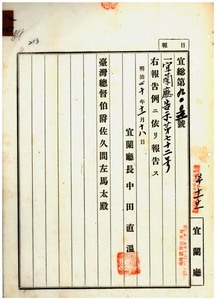 報
日
宜總第九〇五號
一宜蘭廳告示第七十二號
右報告例ニ依リ報告ス
明治四十年十二月十八日
宜蘭廳長 中田直溫
臺灣總督伯爵佐久間左馬太殿
宜蘭廳